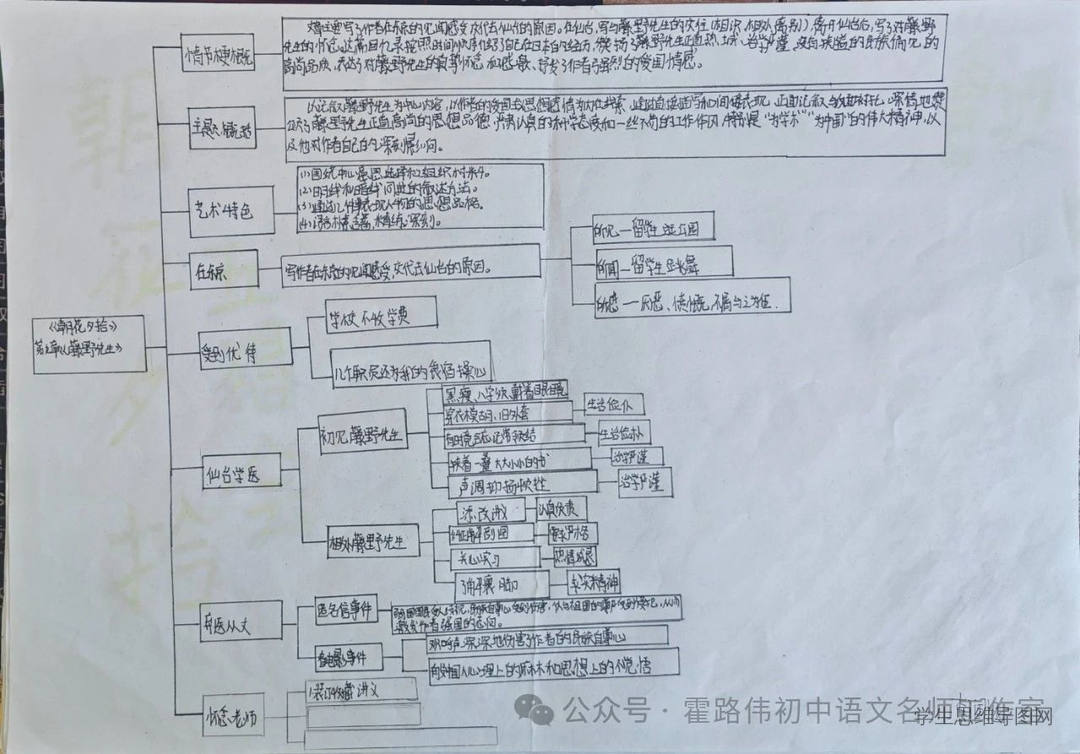 《朝花夕拾》
第九章《藤野先生》
情节梗概
文章主要写了作者在东京的见闻感受交代去仙台的原因。在仙台，写与藤野先生的交往（相识、相处、离别），离开仙台后，写了对藤野
先生的怀念。这篇回忆录按照时间顺序
自己在日本的经历，赞扬了藤野先生正直热诚、治学严谨、没有狭隘的民族偏见的
高尚品质，表达了对藤野先生的真挚怀念和感激，抒发了作者强烈的爱国情感。
主题
以记叙藤野先生为中心内容，以作者的爱国主义思想感情为线索，通过直接描写和间接表现，正面记叙与
对比，深情地赞
藤野先生正直高尚的思想品德，严肃认真的
态度和一丝不苟的工作作风，特别是“为学术”“为中国”的伟大精神，以
及他对作者自己的深刻影响。
艺术特色
(1)围绕中心意思选择和组织材料。
(2)明线和暗线
的叙述方法。
(3)通过几件事表现人物的思想品格。
(4)语
，精练深刻。
在东京
写作者在东京的见闻感受，交代去仙台的原因。
所见—留学生逛公园
所闻—留学生跳舞
所感—厌恶、愤慨、不屑与之为伍.
受到优待
学校不收学费
几个职员还为我的食宿操心
仙台学医
初见藤野先生
黑瘦、八字须、戴着眼镜
穿衣模胡、旧外套
生活俭朴
有时竟忘记带领结
生活俭朴
挟着一叠大大小小的书
治学严谨
声调抑扬顿挫
治学严谨
相处藤野先生
添改讲义
认真负责
纠正解剖图
要求严格
关心实习
热情诚恳
了解裹脚
求实精神
弃医从文
匿名信事件
看电影事件
欢呼声深深地伤害了作者的民族自尊心
有些中国人心理上的麻木和思想上的不觉悟
怀念老师
1.装订收藏讲义
公众号·霍路伟初中语文名师工作室
学生思维导图网